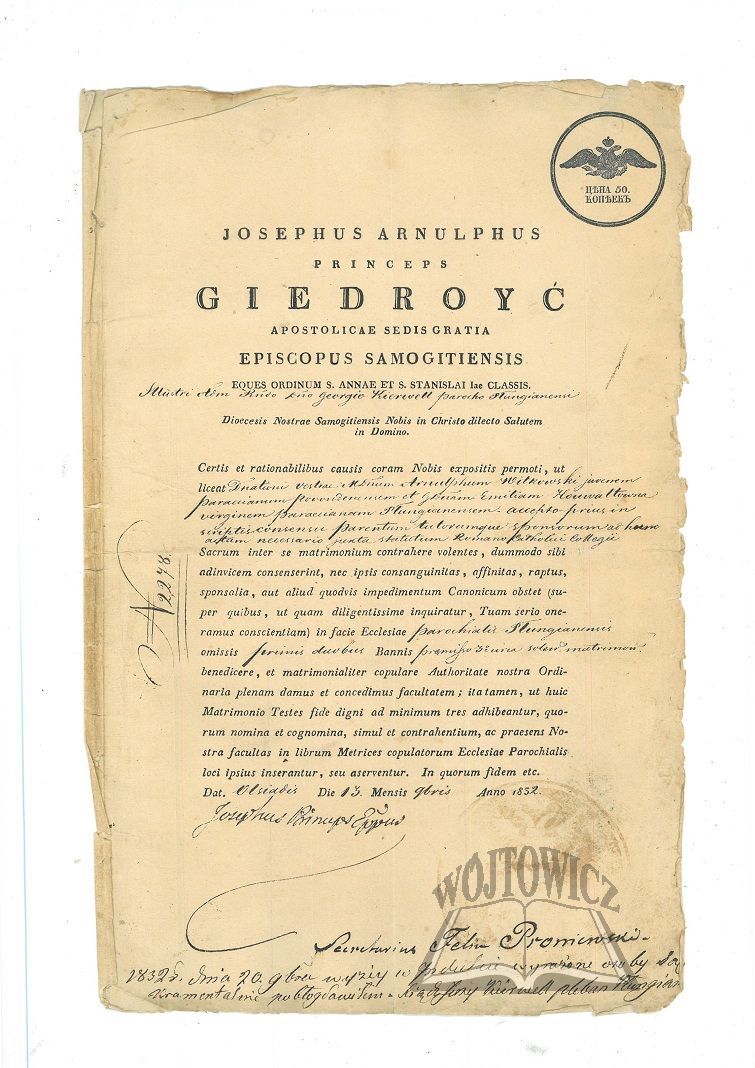 ЦѢНА 50.
КОПѢЕКЪ
JOSEPHUS ARNULPHUS
PRINCEPS
GIEDROYĆ
APOSTOLICAE SEDIS GRATIA
EPISCOPUS SAMOGITIENSIS
EQUES ORDINUM S. ANNAE ET S. STANISLAI Iae CLASSIS.
Illustri Adm Rndo Dno Georgio Kierwell parocho Plungianensi
Dioecesis Nostrae Samogitiensis Nobis in Christo dilecto Salutem
in Domino.
Certis et rationabilibus causis coram Nobis expositis permoti, ut
liceat Dnationi vestrae Arnulphum Witkowski juvenem
paraecianum et Emiliam
virginem paraecianam Plungianensem accepto prius in
scriptis consensu parentum tutorumque sponsorum ad hunc
actum necessario juxta statutum Romano Catholici Collegii
Sacrum inter se matrimonium contrahere volentes, dummodo sibi
adinvicem consenserint, nec ipsis consanguinitas, affinitas, raptus,
sponsalia, aut aliud quodvis impedimentum Canonicum obstet (su-
per quibus, ut quam diligentissime inquiratur, Tuam serio one-
ramus conscientiam) in facie Ecclesiae parochialis Plungianensis
omissis primis duobus Bannis praemisso matrimon:
benedicere, et matrimonialiter copulare Authoritate nostra Ordi-
naria plenam damus et concedimus facultatem; ita tamen, ut huic
Matrimonio Testes fide digni ad minimum tres adhibeantur, quo-
rum nomina et cognomina, simul et contrahentium, ac praesens No-
stra facultas in librum Metrices copulatorum Ecclesiae Parochialis
loci ipsius inserantur, seu aserventur. In quorum fidem etc.
Dat. Olsiadis Die 13 Mensis 9bris Anno 1832.
Josephus Princeps Eppus
N 2278.
WÓJTOWICZ
Secretarius Felix Proniewski
1832 r. dnia 20. 9bra wyżey w Indulcie wyrażone osoby Sa
kramentalnie pobłogosławiłem Kierwell pleban